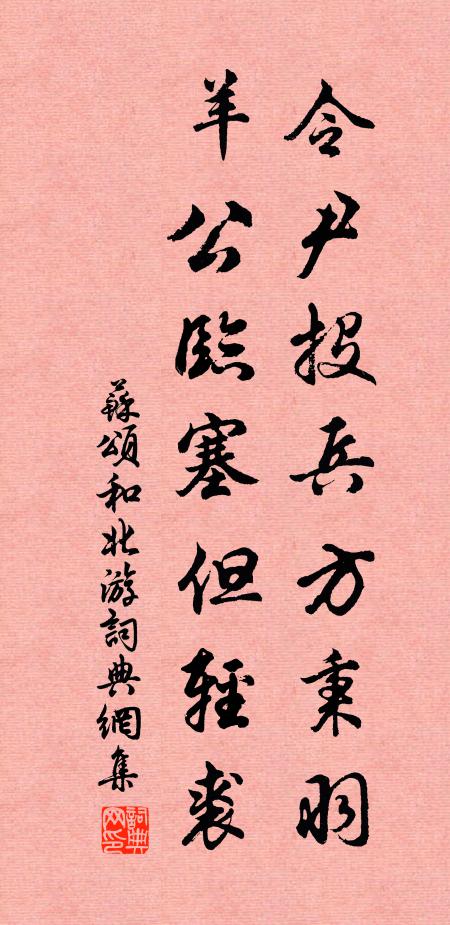 令尹投兵方秉羽
羊公臨塞但輕裘
蘇頌和北游詞典網集
詞典网印